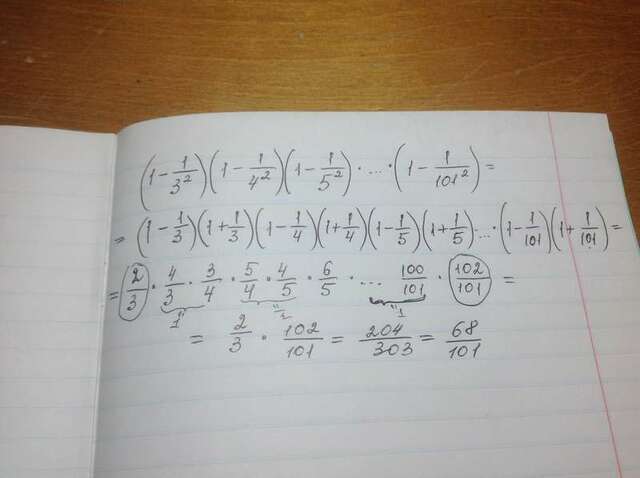 (1 - 1/3²)(1 - 1/4²)(1 - 1/5²) · ... · (1 - 1/101²) =
= (1 - 1/3)(1 + 1/3)(1 - 1/4)(1 + 1/4)(1 - 1/5)(1 + 1/5) ... · (1 - 1/101)(1 + 1/101) =
= 2/3 · 4/3 · 3/4 · 5/4 · 4/5 · 6/5 · ... 100/101 · 102/101 =
1 1 1
= 2/3 · 102/101 = 204/303 = 68/101